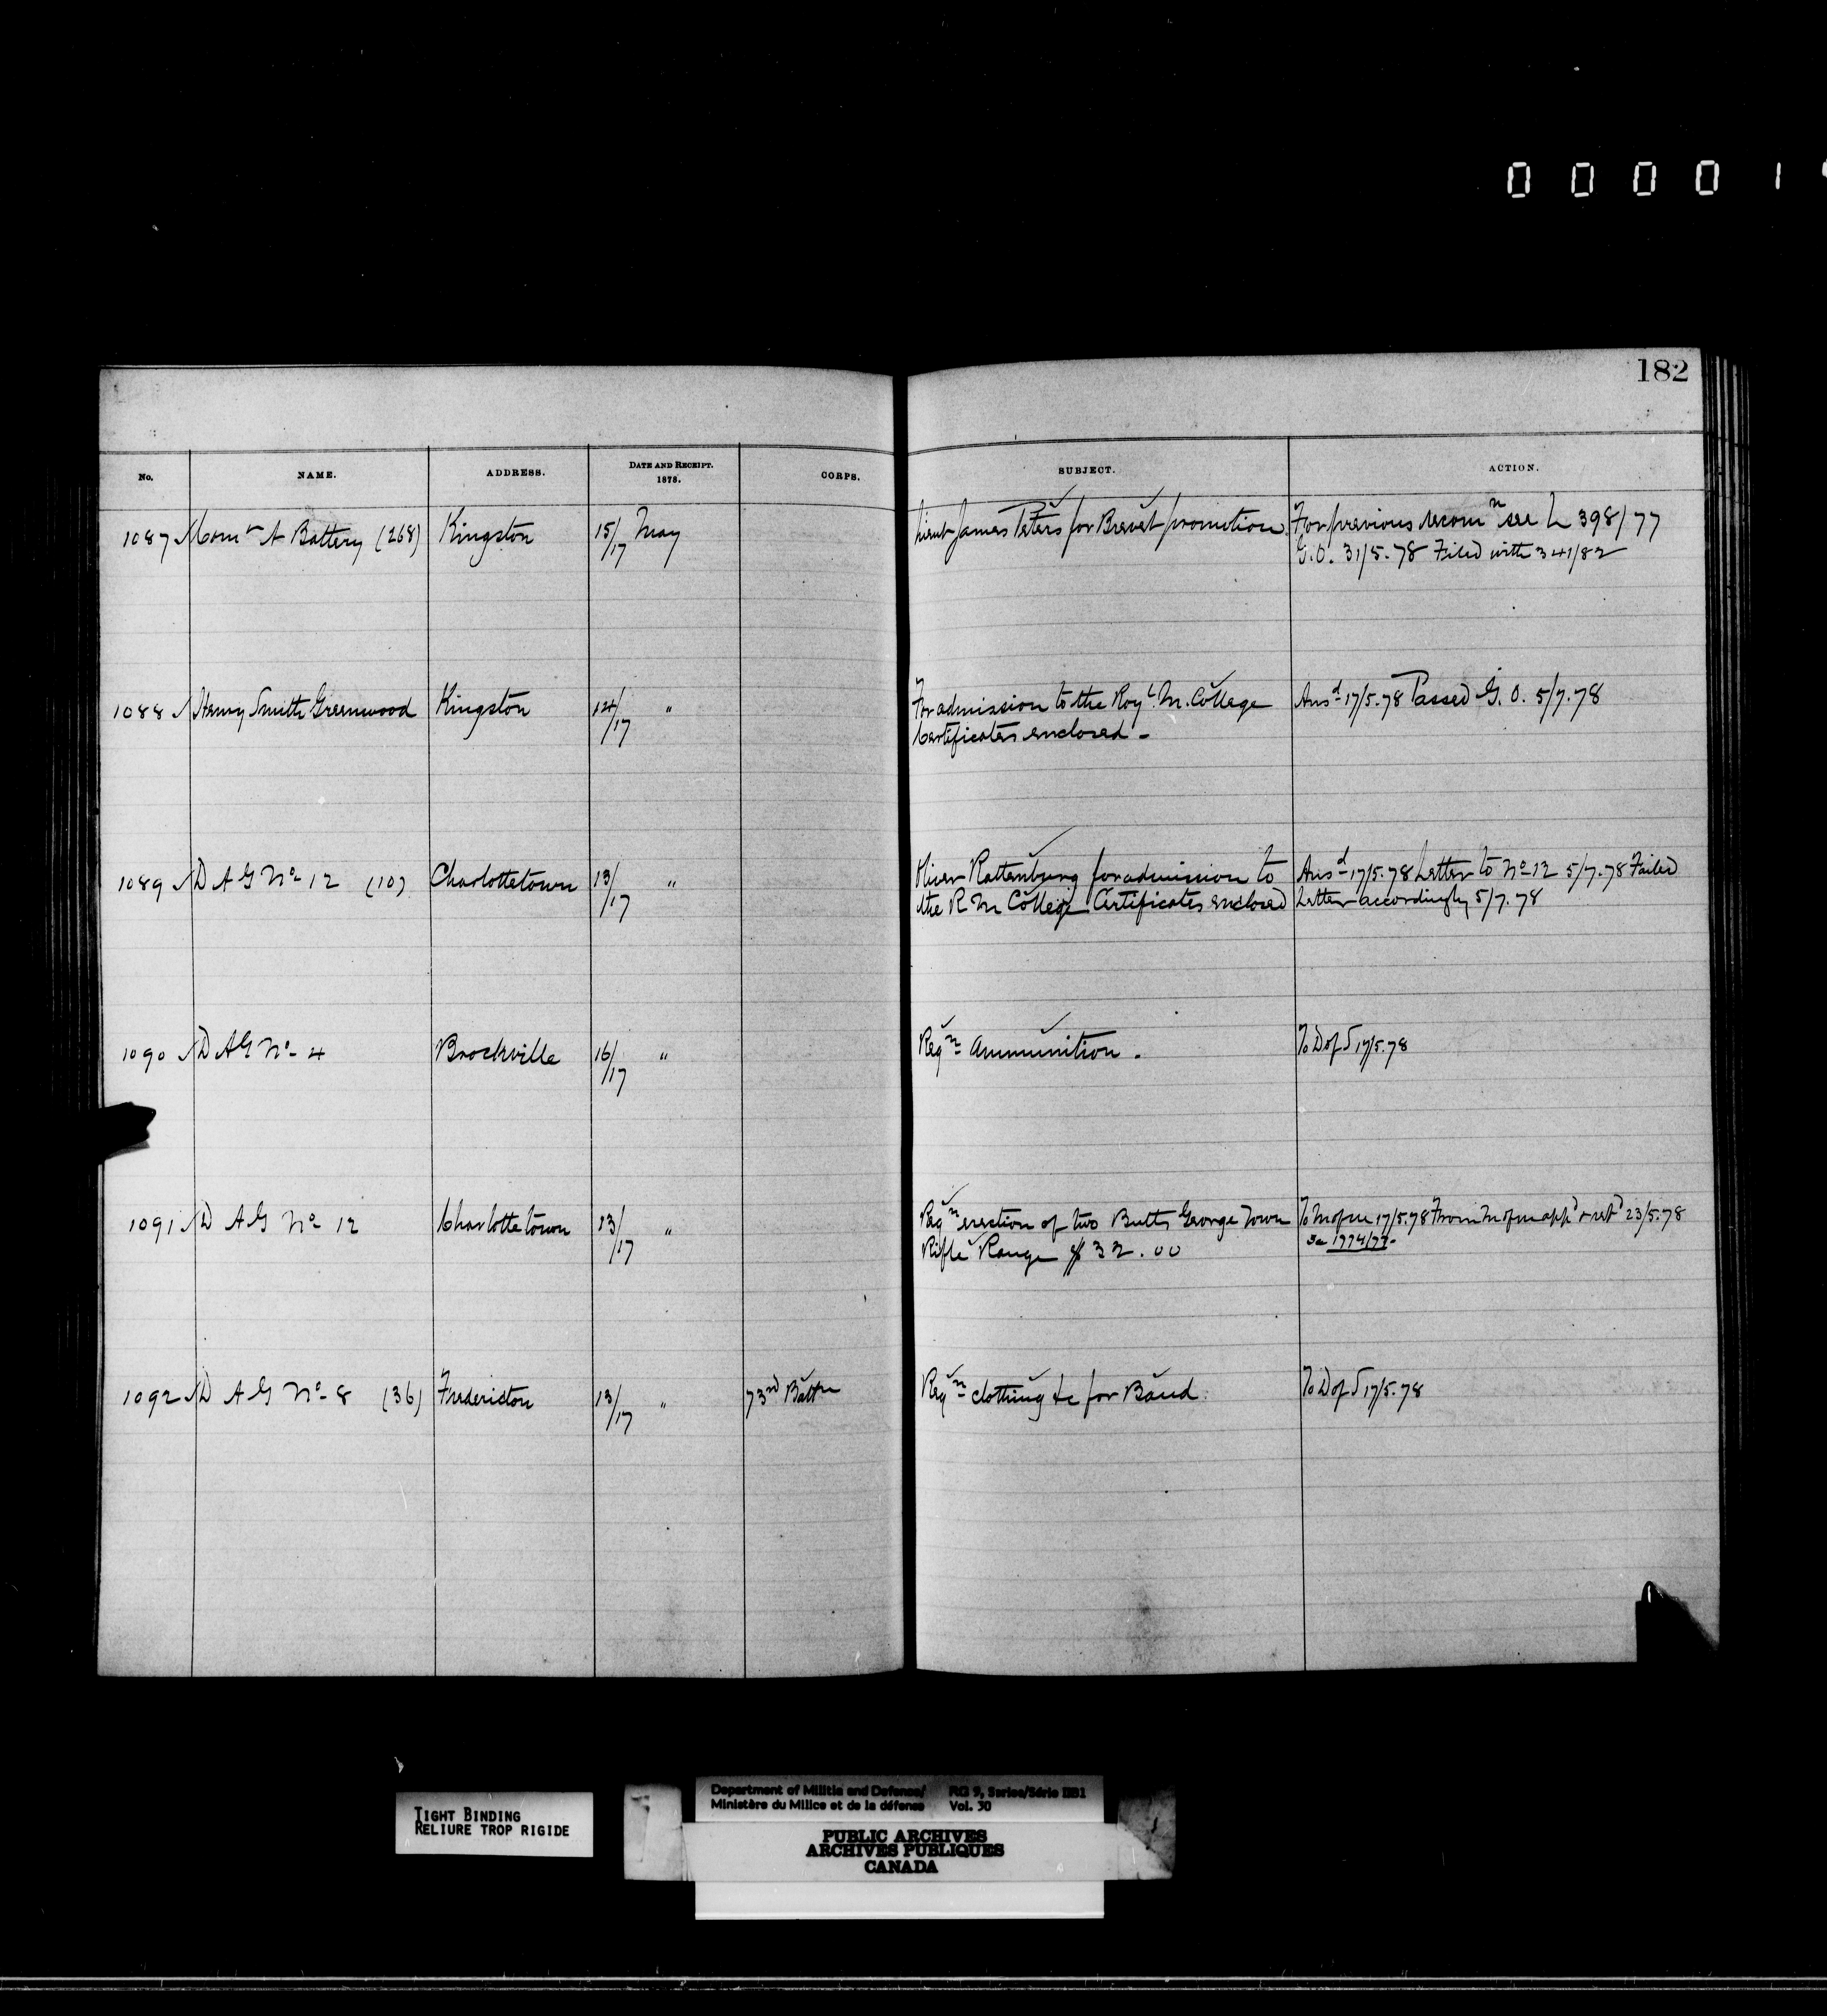 0 0 0 0 1
182
No. NAME. ADDRESS. DATE AND RECEIPT. 1878. CORPS. SUBJECT. ACTION.
1087 Comt A Battery (268) Kingston 15/17 May Lieut James Peters for Brevet promotion. For previous recomn see L 398/77
G.O. 31/5.78 Filed with 341/82
1088 Henry Smith Greenwood Kingston 14/17 " For admission to the Royl. M. College Ansd 17/5.78 Passed G.O. 5/7.78
Certificates enclosed -
1089 D A G No 12 (10) Charlottetown 13/17 " Oliver Rattenbury for admission to Ansd 17/5.78 Letter to No 12 5/7.78 Failed
the R M College Certificates enclosed Letter accordingly 5/7.78
1090 D A G No 4 Brockville 16/17 " Reqn Ammunition. To D of S 17/5.78
1091 D A G No 12 Charlottetown 13/17 " Reqn erection of two Butts George Town To M of M 17/5.78 From M of M appd & retd 23/5.78
Rifle Range $32.00 1774/77
1092 D A G No 8 (36) Fredericton 13/17 " 73rd Battn Reqn clothing &c for Band. To D of S 17/5.78
TIGHT BINDING
RELIURE TROP RIGIDE
Department of Militia and Defence/ RG 9, Series/Série IIB1
Ministère du Milice et de la défense Vol. 30
PUBLIC ARCHIVES
ARCHIVES PUBLIQUES
CANADA